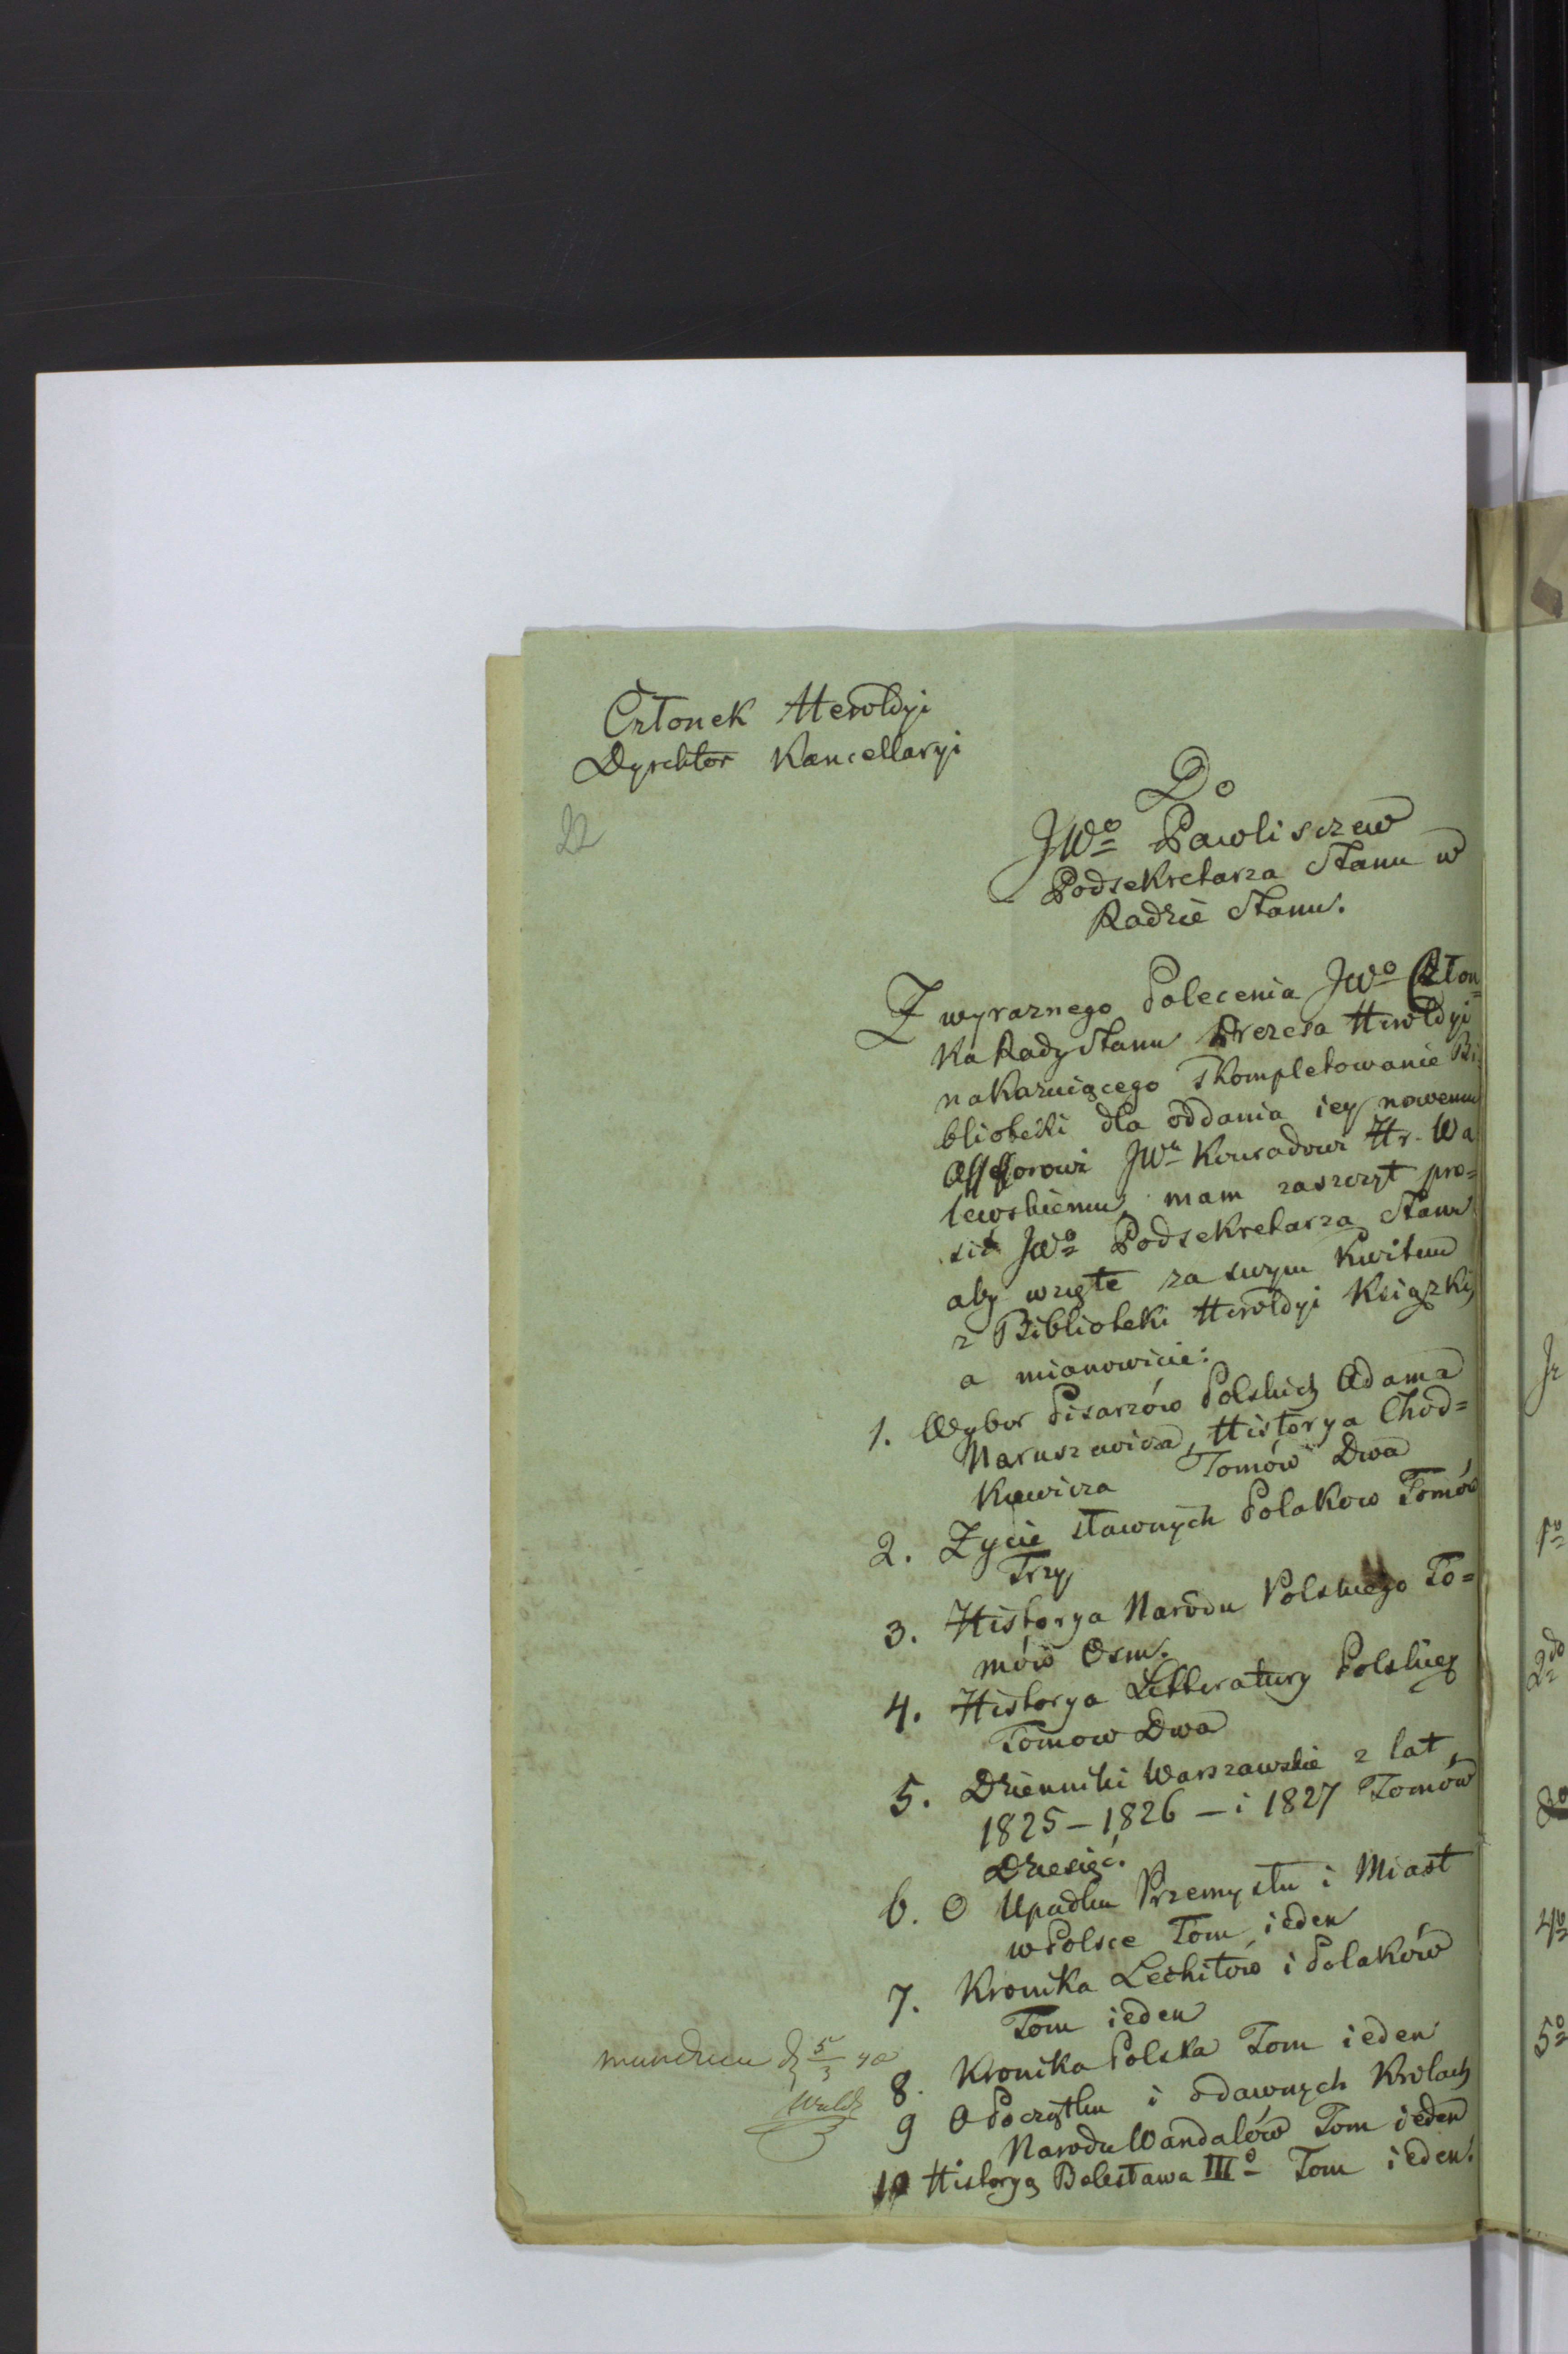 Członek Heroldyi
Dyrektor Kancellaryi
22
Do
JWo Pawliszczew
Podsekretarza Stanu w
Radzie Stanu.
Z wyraznego Polecenia JWo Człon=
ka Rady Stanu Prezesa Heroldyi
nakazuiącego skompletowanie Bi
blioteki dla oddania iey nowemu
Assessorowi JWu Konradowi Hr. Wa
lewskiemu, mam zaszczyt pro=
sić JWo Podsekretarza Stanu
aby wzięte za swym kwitem
z Biblioteki Heroldyi Książki,
a mianowicie:
1. Wybor Pisarzów Polskich Adama
Naruszewicza, Historya Chod=
kiewicza Tomów Dwa
2. Zycie sławnych Polakow Tomów
Trzy
3. Historya Narodu Polskiego To=
mów Osm.
4. Historya Litteratury Polskiey
Tomow Dwa
5. Dzienniki Warszawskie z lat
1825 – 1826 – i 1827 Tomów
Dziesięć.
6. O Upadku Przemysłu i Miast
w Polsce Tom ieden
7. Kronika Lechitów i Polaków
Tom ieden
8. Kronika Polska Tom ieden
9 O Początku i odawnych Krolach
Narodu Wandalów Tom ieden
10 Historya Bolesława IIIo Tom ieden.
mundum d 5/3 40
1o
2do
4o
5o